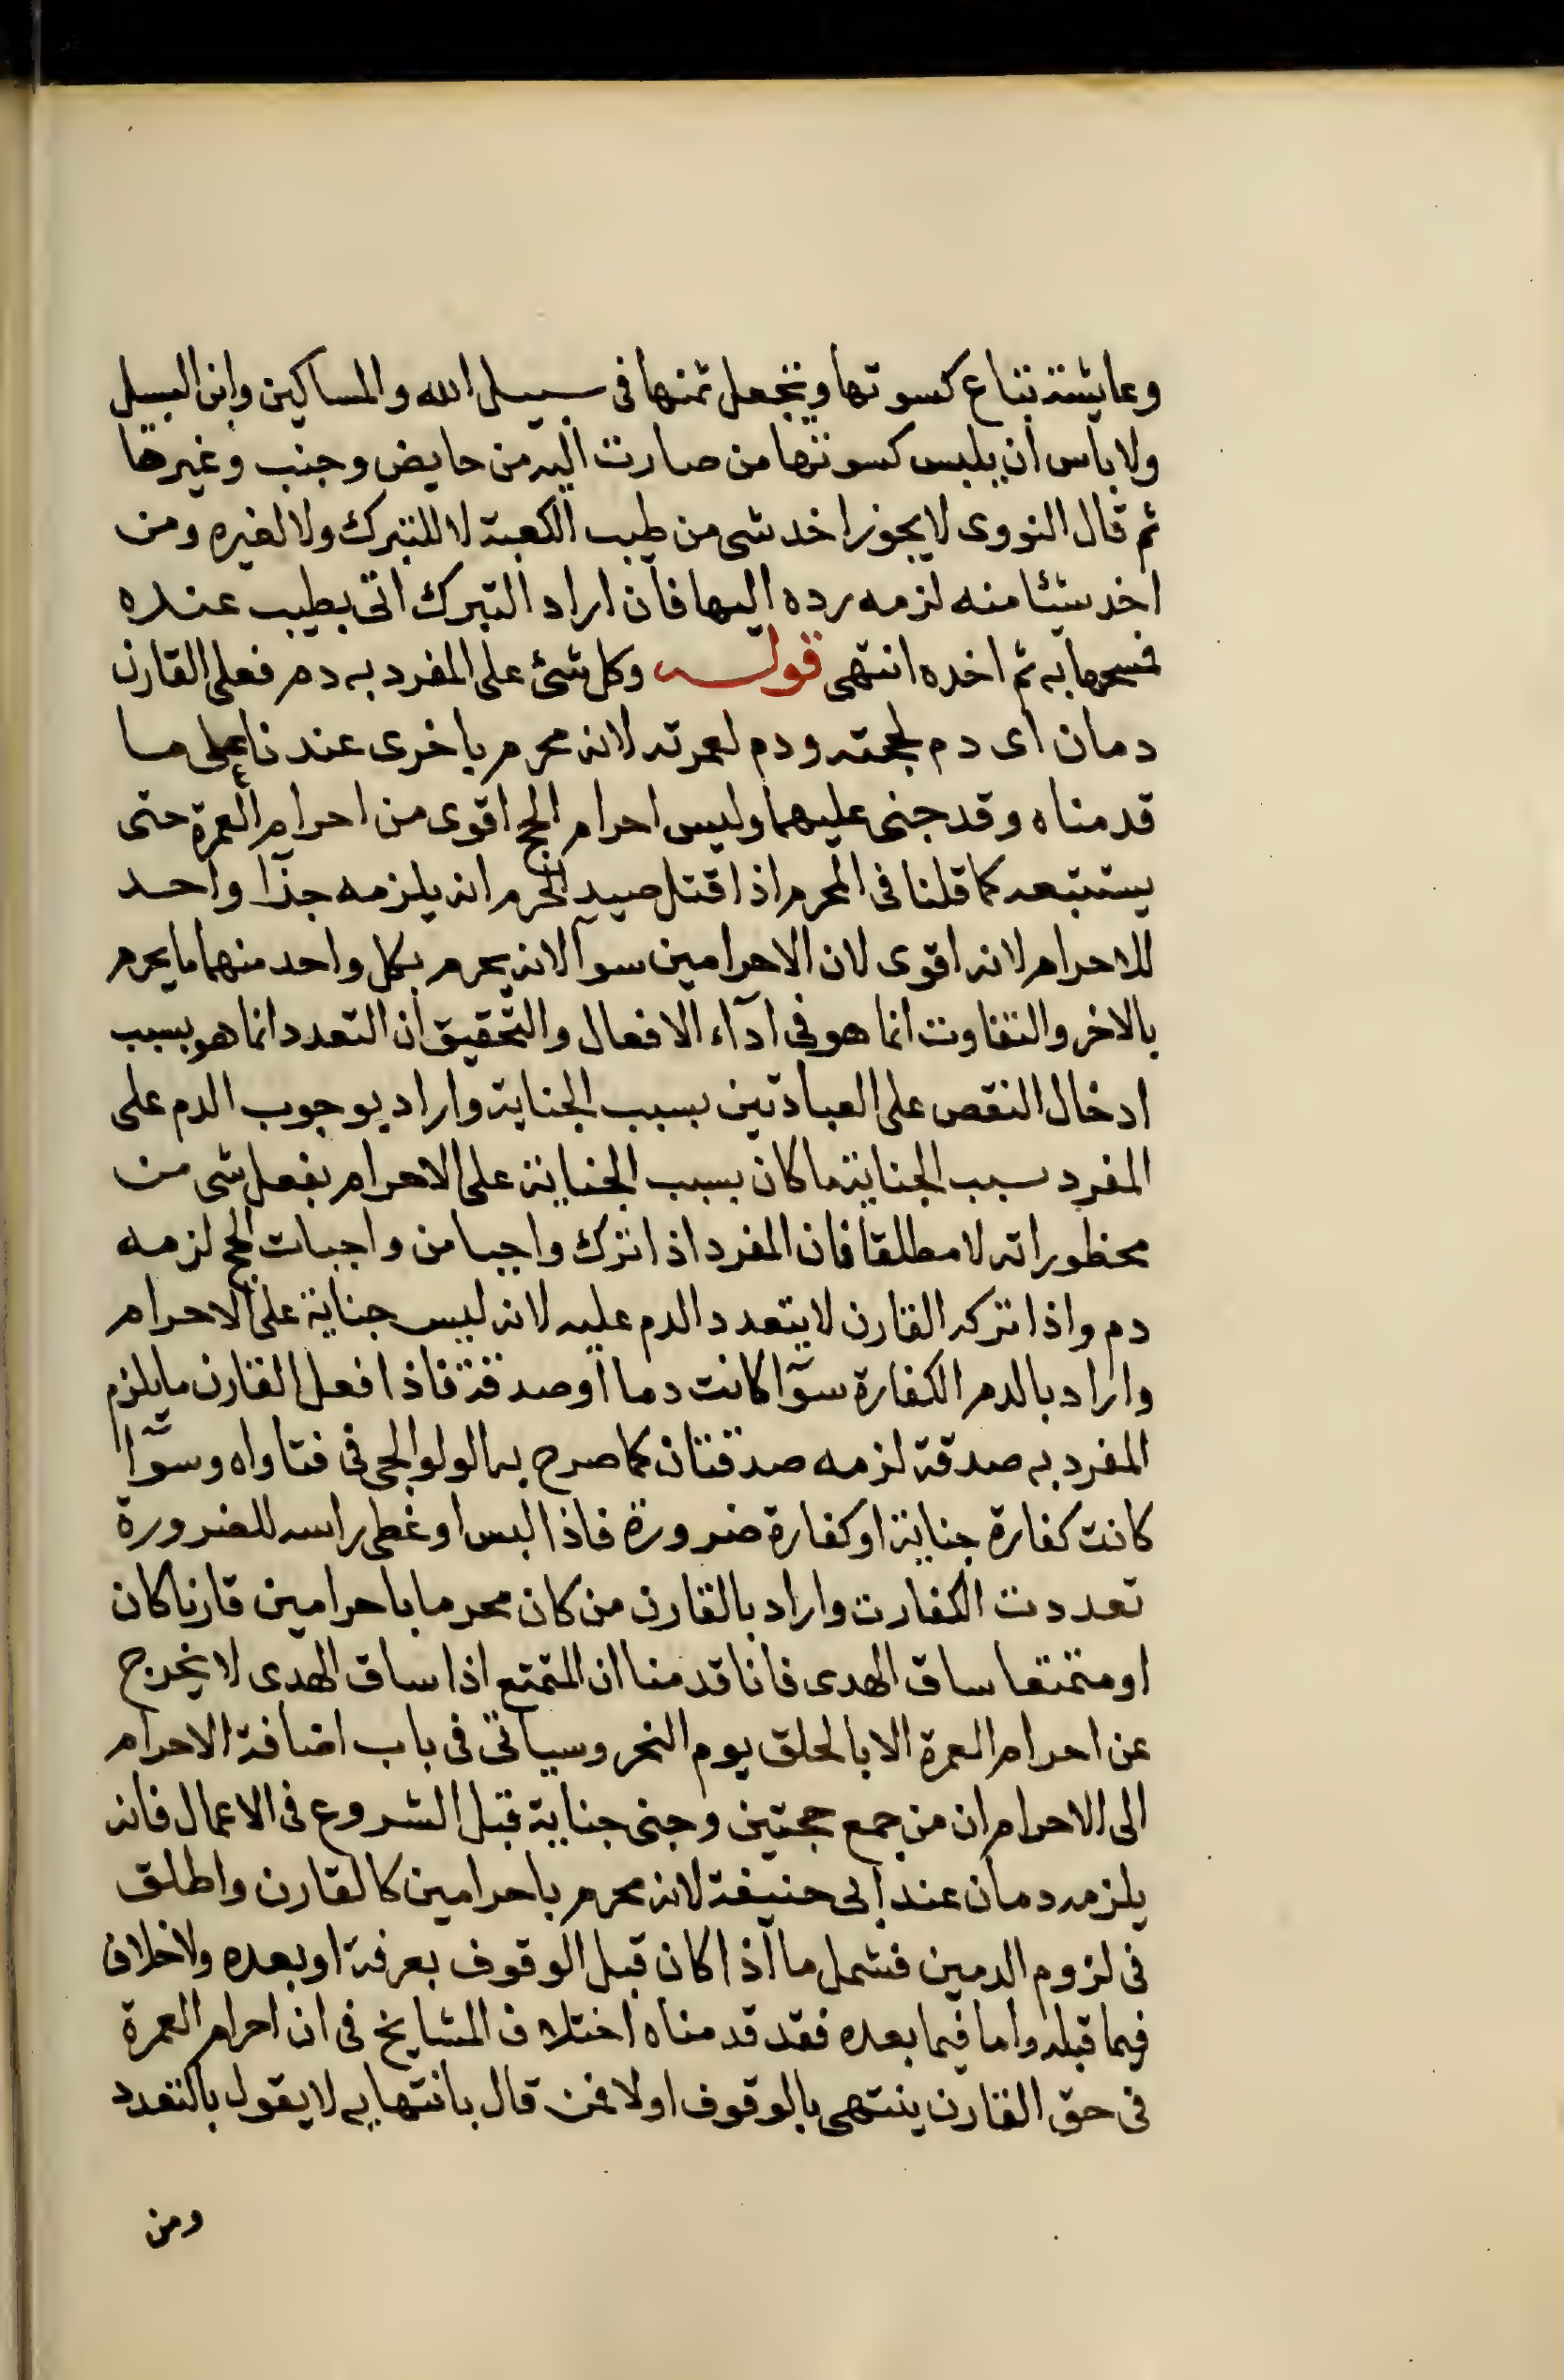 وعايشة تباع كسوتها ويجعل ثمنها فى سبيل الله والمساكين وابن السبيل
ولا باس ان يلبس كسوتها من صارت اليه من حايض وجنب وغيرها
ثم قال النووى لا يجوز اخد شى من طيب الكعبة لا للتبرك ولا لغيره ومن
اخد شيئا منه لزمه رده اليها فان اراد التبرك اتى بطيب عنده
فمسحها به ثم اخده انتهى قوله وكل شئ على المفرد به دم فعلى القارن
دمان اى دم لحجته ودم لعمرته لانه محرم باخرى عندنا على ما
قدمناه وقد جنى عليهما وليس احرام الحج اقوى من احرام العمرة حتى
يستتبعه كما قلنا فى المحرم اذا قتل صيد الحرم انه يلزمه جذا واحد
للاحرام لانه اقوى لان الاحرامين سوآ لانه يحرم بكل واحد منهما ما يحرم
بالاخر والتفاوت انما هو فى ادآء الافعال والتحقيق ان التعدد انما هو بسبب
ادخال النقص على العبادتين بسبب الجناية واراد بوجوب الدم على
المفرد سبب الجناية ما كان بسبب الجناية على الاحرام بفعل شى من
محظوراته لا مطلقا فان المفرد اذا ترك واجبا من واجبات الحج لزمه
دم واذا تركه القارن لا يتعدد الدم عليه لانه ليس جناية على الاحرام
واراد بالدم الكفارة سوآ كانت دما او صدقة فاذا فعل القارن ما يلزم
المفرد به صدقة لزمه صدقتان كما صرح به الولوالجى فى فتاواه وسوآ
كانت كفارة جناية او كفارة ضرورة فاذا لبس او غطى راسه للضرورة
تعددت الكفارت واراد بالقارن من كان محرما باحرامين قارنا كان
او متمتعا ساق الهدى فانا قدمنا ان المتمتع اذا ساق الهدى لا يخرج
عن احرام العمرة الا بالحلق يوم النحر وسياتى فى باب اضافة الاحرام
الى الاحرام ان من جمع حجتين وجنى جناية قبل الشروع فى الاعمال فانه
يلزمه دمان عند ابى حنيفة لانه محرم باحرامين كالقارن واطلق
فى لزوم الدمين فشمل ما اذا كان قبل الوقوف بعرفة او بعده ولا خلاف
فيما قبله واما فيما بعده فقد قدمناه اختلاف المشايخ فى ان احرام العمرة
فى حق القارن ينتهى بالوقوف اولا فمن قال بانتهايه لا يقول بالتعدد
ومن